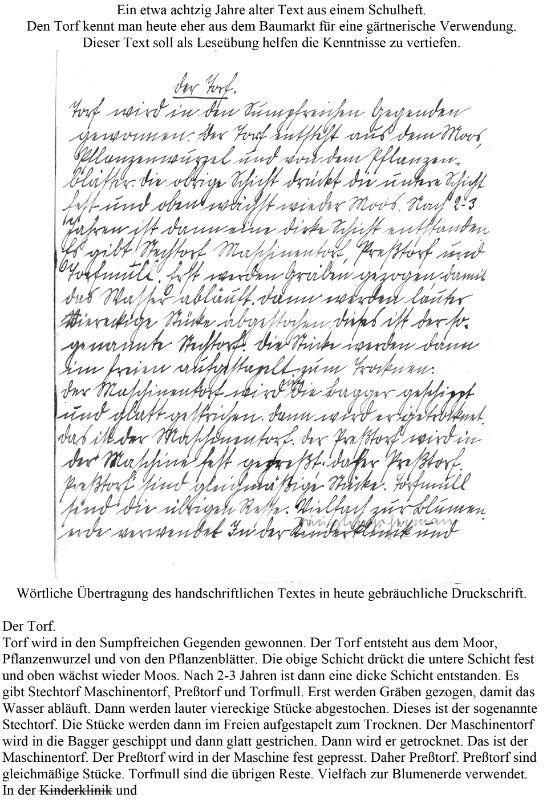 Ein etwa achtzig Jahre alter Text aus einem Schulheft.
Den Torf kennt man heute eher aus dem Baumarkt für eine gärtnerische Verwendung.
Dieser Text soll als Leseübung helfen die Kenntnisse zu vertiefen.
der Torf.
Torf wird in den Sumpfreichen Gegenden
gewonnen. der Torf entsteht aus dem Moos,
Pflanzenwurzel und von dem Pflanzen-
blätter. die obige Schicht drückt die untere Schicht
fest und oben wächst wieder Moos. Nach 2-3
Jahren ist dann eine dicke Schicht entstanden
Es gibt Stechtorf Maschinentorf, Preßtorf und
Torfmull. Erst werden Gräben gezogen damit
das Wasser abläuft. dann werden lauter
viereckige Stücke abgestochen. dieses ist der so-
genannte Stechtorf. die Stücke werden dann
im freien aufgestapelt zum Trocknen.
der Maschinentorf wird in die Bagger geschippt
und glatt gestrichen. dann wird er getrocknet.
das ist der Maschinentorf. der Preßtorf wird in
der Maschine fest gepreßt. daher Preßtorf.
Preßtorf sind gleichmäßige Stücke. Torfmull
sind die übrigen Reste. Vielfach zur Blumen-
erde verwendet In der Kinderklinik und
Wörtliche Übertragung des handschriftlichen Textes in heute gebräuchliche Druckschrift.
Der Torf.
Torf wird in den Sumpfreichen Gegenden gewonnen. Der Torf entsteht aus dem Moor,
Pflanzenwurzel und von den Pflanzenblätter. Die obige Schicht drückt die untere Schicht fest
und oben wächst wieder Moos. Nach 2-3 Jahren ist dann eine dicke Schicht entstanden. Es
gibt Stechtorf Maschinentorf, Preßtorf und Torfmull. Erst werden Gräben gezogen, damit das
Wasser abläuft. Dann werden lauter viereckige Stücke abgestochen. Dieses ist der sogenannte
Stechtorf. Die Stücke werden dann im Freien aufgestapelt zum Trocknen. Der Maschinentorf
wird in die Bagger geschippt und dann glatt gestrichen. Dann wird er getrocknet. Das ist der
Maschinentorf. Der Preßtorf wird in der Maschine fest gepresst. Daher Preßtorf. Preßtorf sind
gleichmäßige Stücke. Torfmull sind die übrigen Reste. Vielfach zur Blumenerde verwendet.
In der Kinderklinik und